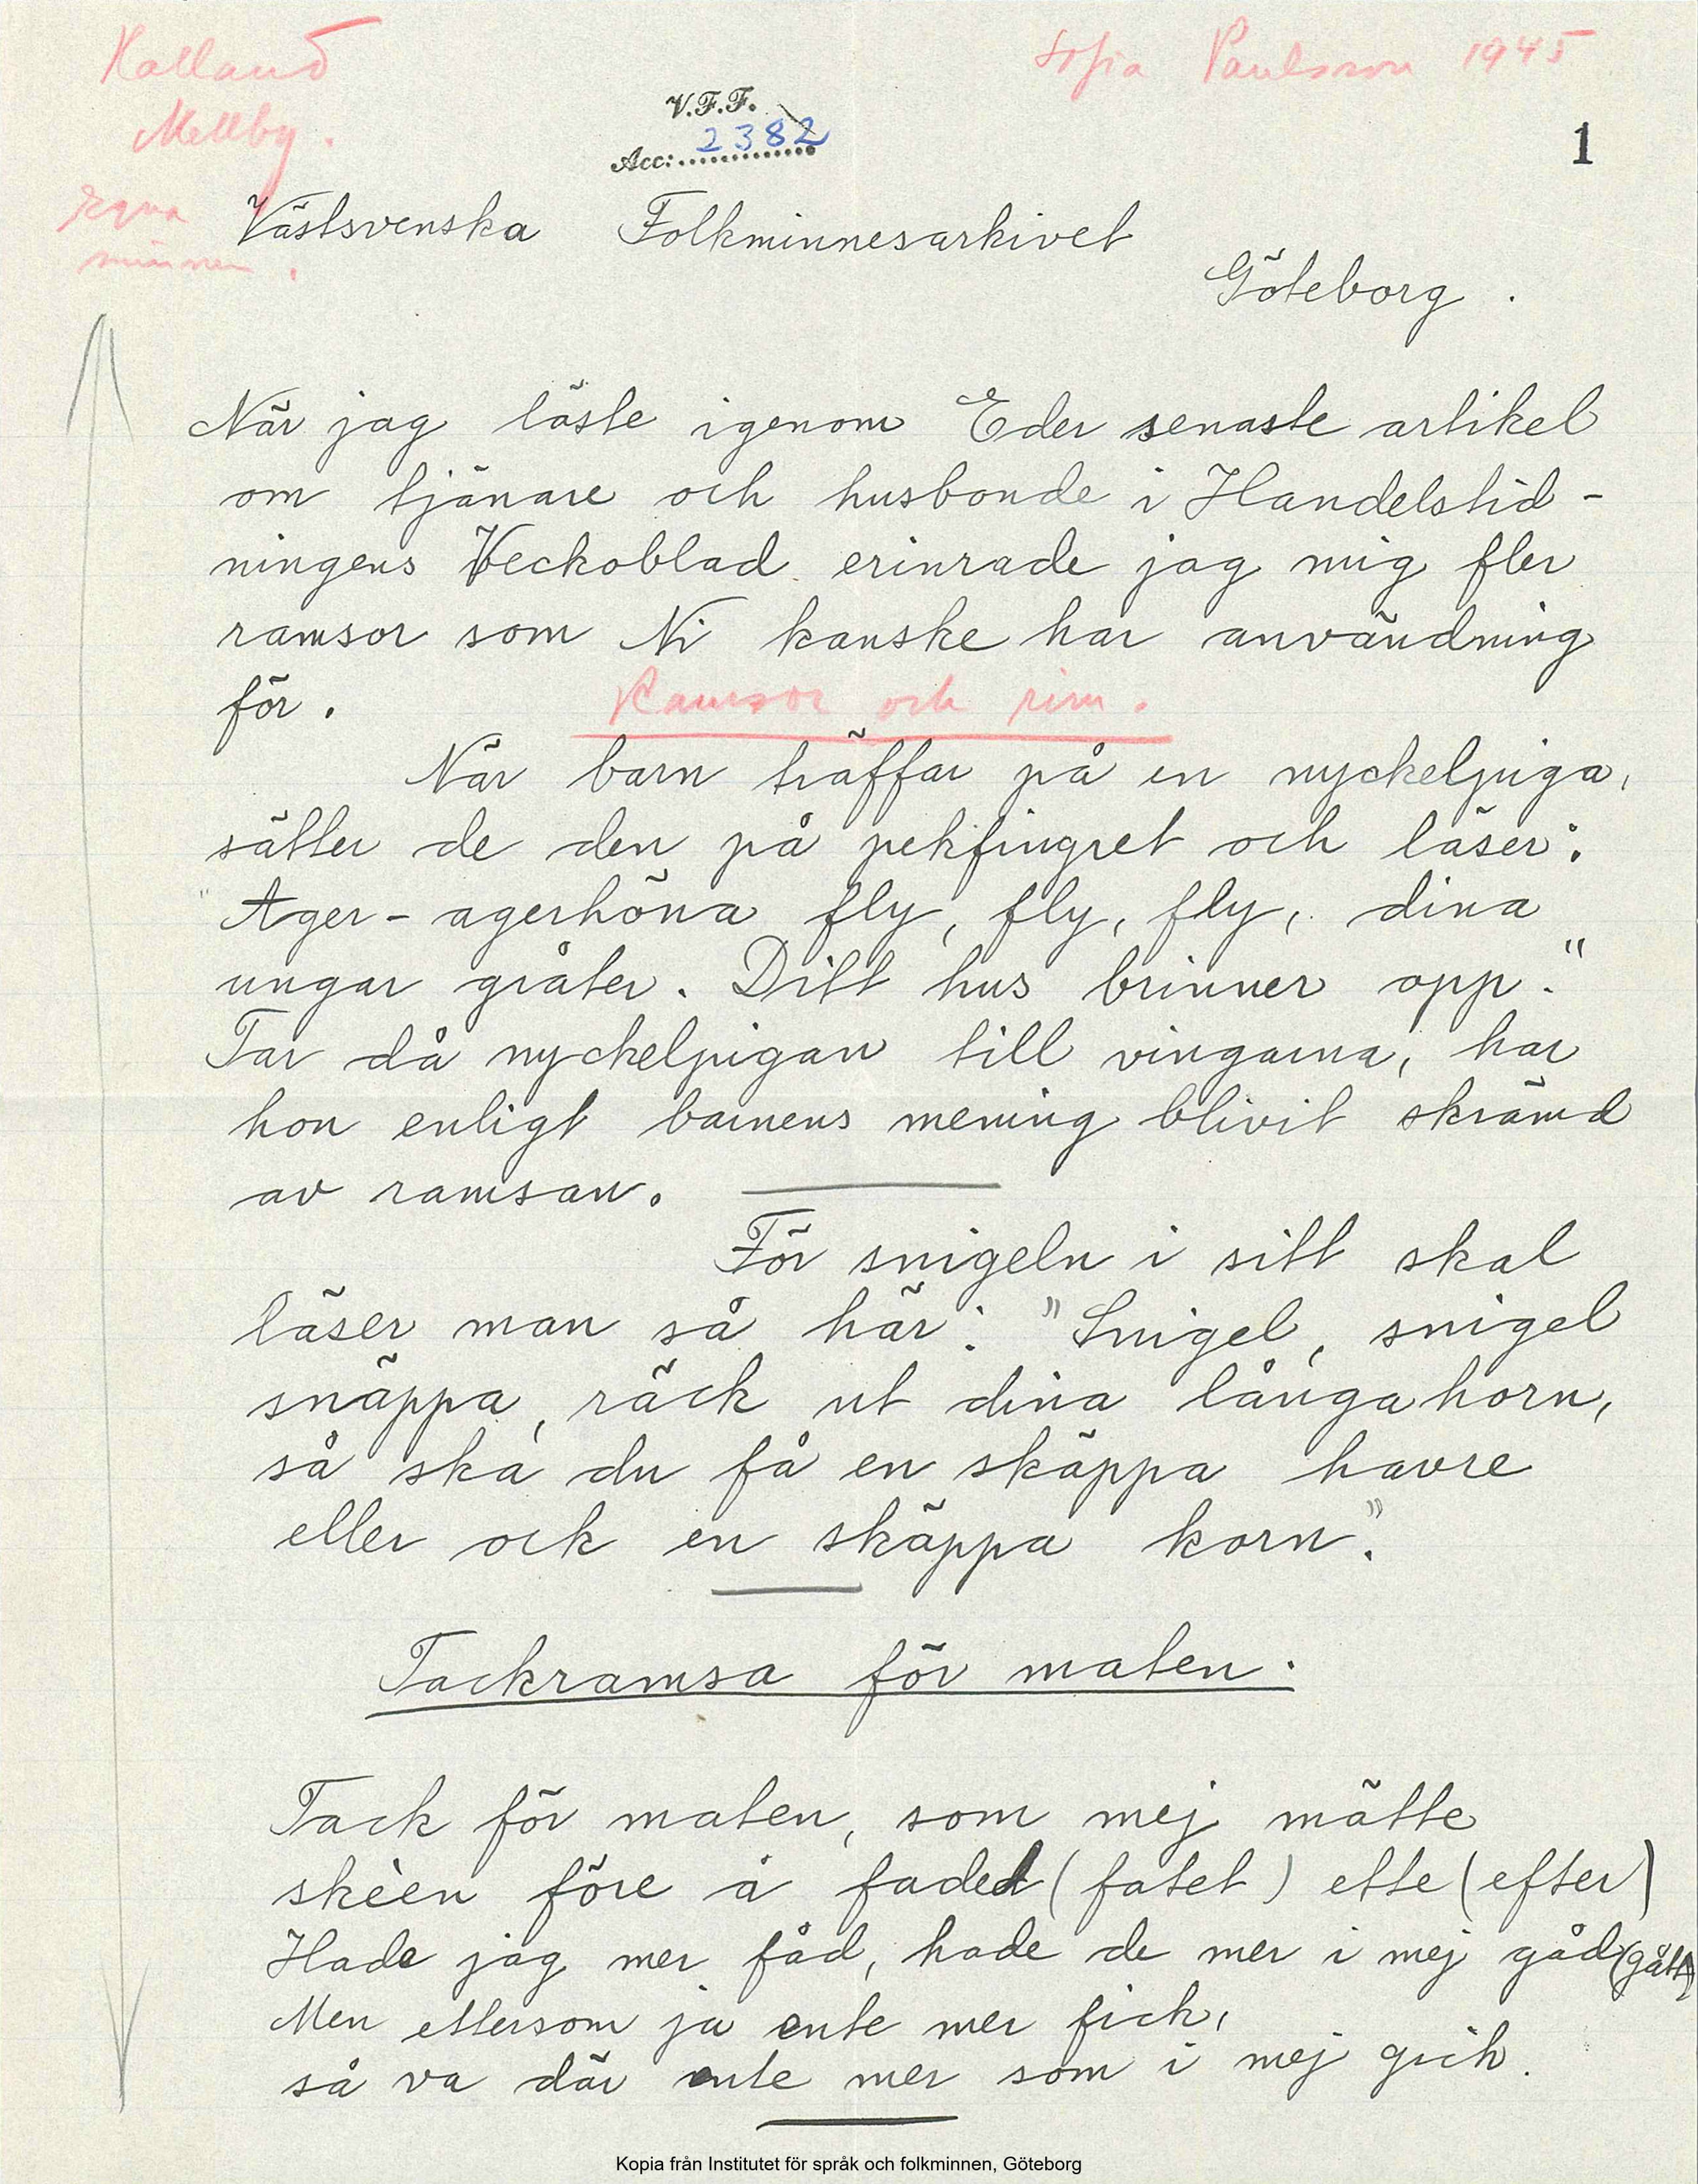 Halland
Mellby.
Egna
minnen.
Sofia Paulsson 1945
V.F.F.
Acc: 2382
1
Västsvenska Folkminnesarkivet
Göteborg.
När jag läste igenom Eder senaste artikel
om tjänare och husbonde i Handelstid-
ningens Veckoblad erinrade jag mig fler
ramsor som Ni kanske har användning
för.
Ramsor och rim.
När barn träffar på en nyckelpiga,
sätter de den på pekfingret och läser:
"Ager-agerhöna fly, fly, fly, dina
ungar gråter. Ditt hus brinner opp."
Tar då nyckelpigan till vingarna, har
hon enligt barnens mening blivit skrämd
av ramsan.
För snigeln i sitt skal
läser man så här: "Snigel, snigel
snäppa, räck ut dina långa horn,
så ska du få en skäppa havre
eller ock en skäppa korn."
Tackramsa för maten.
Tack för maten, som mej mätte
skèen före å faded (fatet) ette (efter)
Hade jag mer fåd, hade de mer i mej gåd (gått)
Men ettersom ja ente mer fick,
så va där ente mer som i mej gick.
Kopia från Institutet för språk och folkminnen, Göteborg